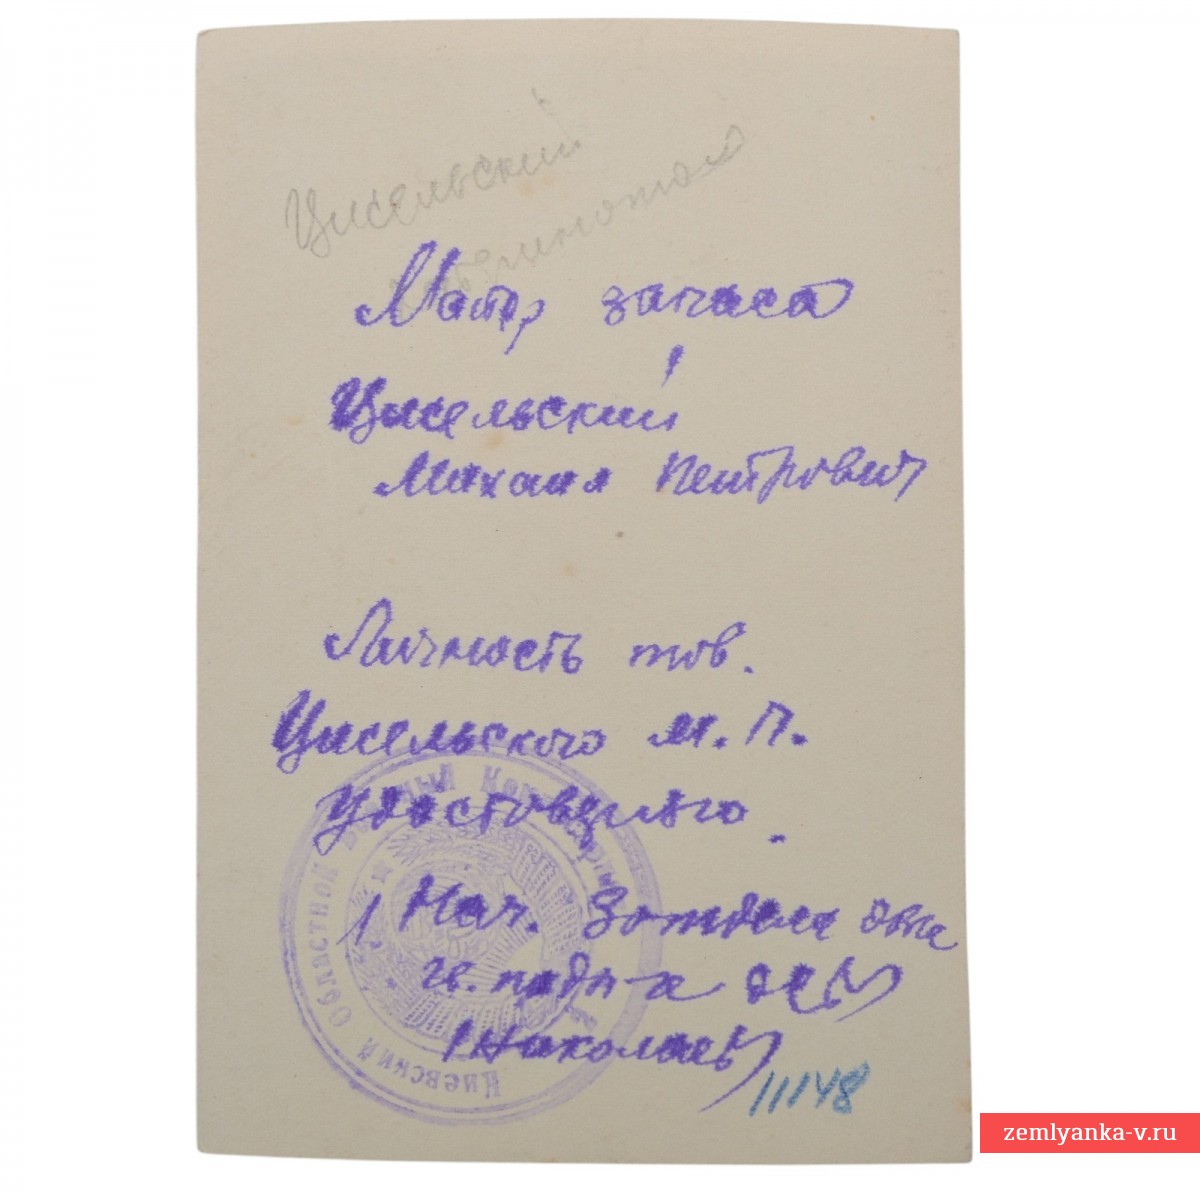 Цисельский
Матр запаса
Цисельский
Михаил Петрович
Личность тов.
Цисельского М.П.
удостоверяю.
Нач. 3 отдела
гв. подп-к
/Николаев/
11148
Киевский Областной Военный
zemlyanka-v.ru